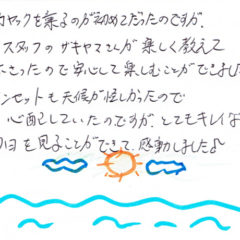 カヤックを乗るのが初めてだったのですが、
スタッフのサキヤマさんが楽しく教えて
さったので安心して楽しむことができました
ンセットも天候が怪しかったので
心配していたのですが、とてもキレイな
日を見ることができて、感動しました♪